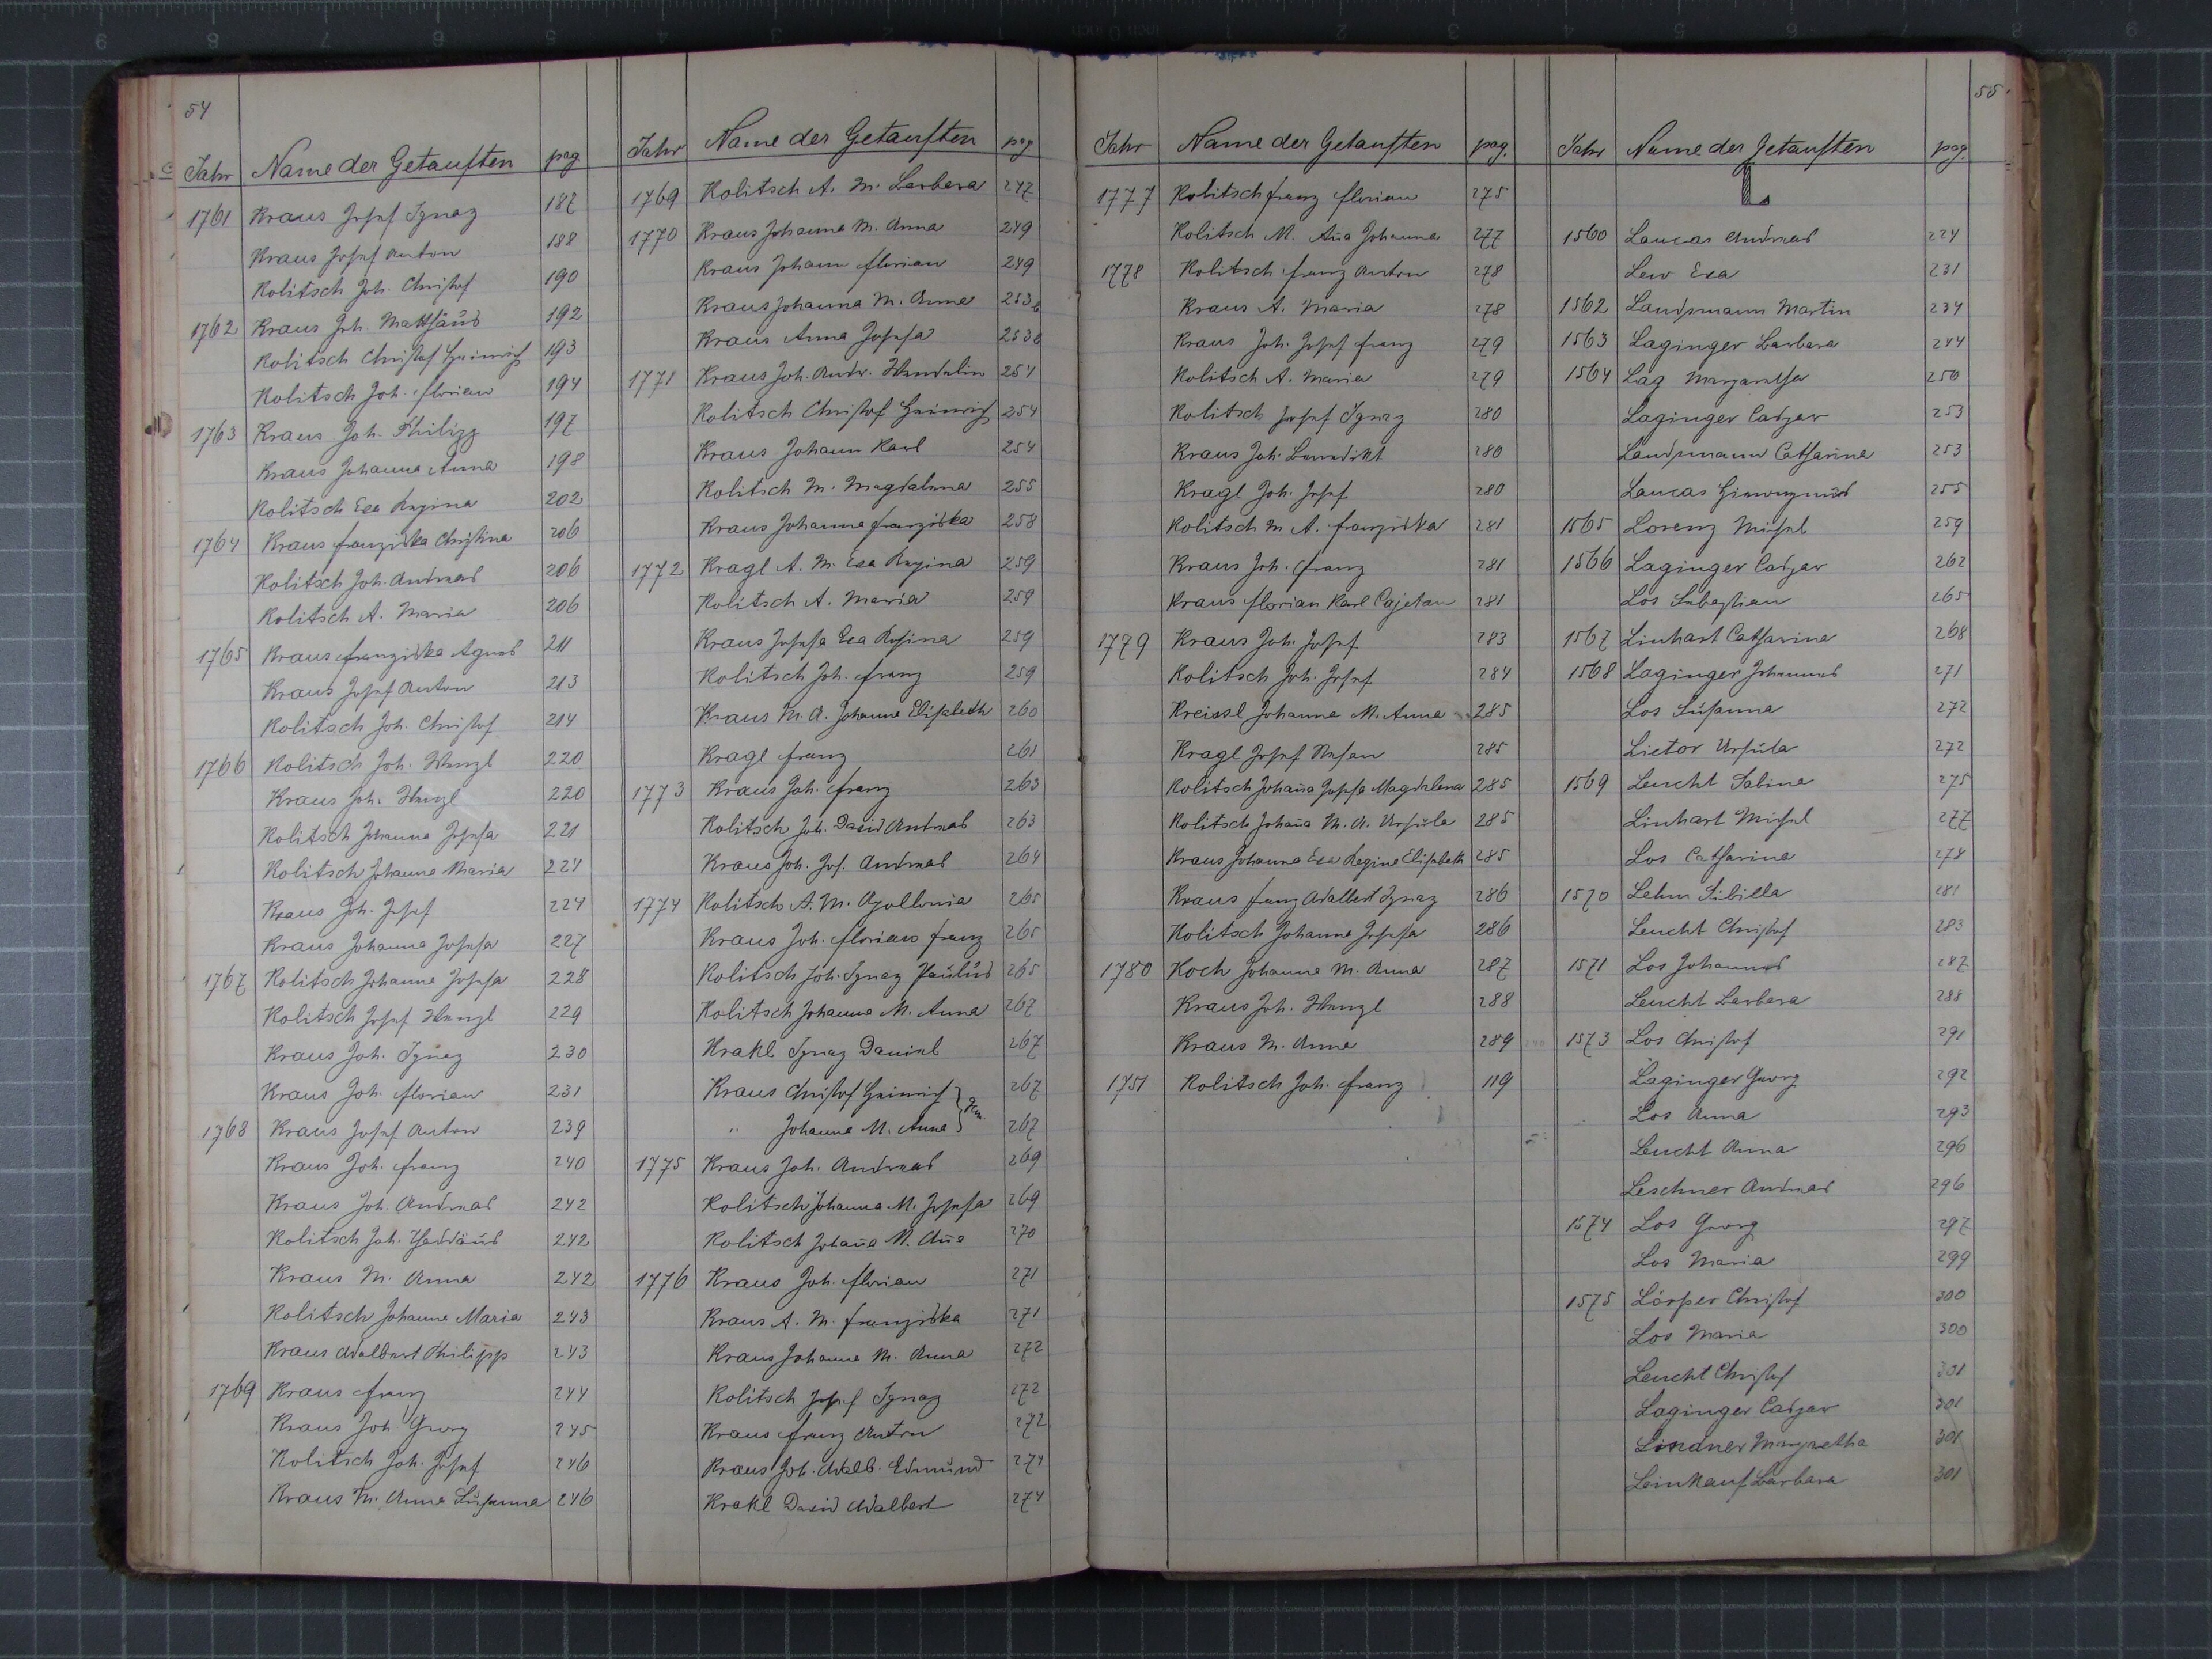 54
Jahr Name der Getauften pag.
1761 Kraus Josef Ignaz 187
Kraus Josef Anton 188
Kolitsch Joh. Christof 190
1762 Kraus Joh. Matthäus 192
Kolitsch Christof Heinrich 193
Kolitsch Joh. Florian 194
1763 Kraus Joh. Philipp 197
Kraus Johanna Anna 198
Kolitsch Eva Regina 202
1764 Kraus Franziska Christina 206
Kolitsch Joh. Andreas 206
Kolitsch A. Maria 206
1765 Kraus Franziska Agnes 211
Kraus Josef Anton 213
Kolitsch Joh. Christof 214
1766 Kolitsch Joh. Wenzl 220
Kraus Joh. Wenzl 220
Kolitsch Johanna Josefa 221
Kolitsch Johanna Maria 221
Kraus Joh. Josef 224
Kraus Johanna Josefa 227
1767 Kolitsch Johanna Josefa 228
Kolitsch Josef Wenzl 229
Kraus Joh. Ignaz 230
Kraus Joh. Florian 231
1768 Kraus Josef Anton 239
Kraus Joh. Franz 240
Kraus Joh. Andreas 242
Kolitsch Joh. Thaddäus 242
Kraus M. Anna 242
Kolitsch Johanna Maria 243
Kraus Adalbert Philipp 243
1769 Kraus Franz 244
Kraus Joh. Georg 245
Kolitsch Joh. Josef 246
Kraus M. Anna Susanna 246
Jahr Name der Getauften pag
1769 Kolitsch A. M. Barbara 247
1770 Kraus Johanna M. Anna 249
Kraus Johann Florian 249
Kraus Johanna M. Anna 253b
Kraus Anna Josefa 253b
1771 Kraus Joh. Andr. Wendelin 254
Kolitsch Christof Heinrich 254
Kraus Johann Karl 254
Kolitsch M. Magdalena 255
Kraus Johanna Franziska 258
1772 Kragl A. M. Eva Regina 259
Kolitsch A. Maria 259
Kraus Josefa Eva Rosina 259
Kolitsch Joh. Franz 259
Kraus M. A. Johanna Elisabeth 260
Kragl Franz 261
1773 Kraus Joh. Franz 263
Kolitsch Joh. David Andreas 263
Kraus Joh. Jos. Andreas 264
1774 Kolitsch A. M. Apollonia 265
Kraus Joh. Florian Franz 265
Kolitsch Joh. Ignaz Paulus 265
Kolitsch Johanna M. Anna 267
Krakl Ignaz Daniel 267
Kraus Christof Heinrich 267
" Johanna M. Anna 267
1775 Kraus Joh. Andreas 269
Kolitsch Johanna M. Josefa 269
Kolitsch Johaña M. Aña 270
1776 Kraus Joh. Florian 271
Kraus A. M. Franziska 271
Kraus Johanna M. Anna 272
Kolitsch Josef Ignaz 272
Kraus Franz Anton 272
Kraus Joh. Adalb. Edmund 274
Krakl David Adalbert 274
Jahr Name der Getauften pag.
1777 Kolitsch Franz Florian 275
Kolitsch M. Aña Johanna 277
1778 Kolitsch Franz Anton 278
Kraus A. Maria 278
Kraus Joh. Josef Franz 279
Kolitsch A. Maria 279
Kolitsch Josef Ignaz 280
Kraus Joh. Benedikt 280
Kragl Joh. Josef 280
Kolitsch M. A. Franziska 281
Kraus Joh. Franz 281
Kraus Florian Karl Cajetan 281
1779 Kraus Joh. Josef 283
Kolitsch Joh. Josef 284
Kreissl Johanna M. Anna 285
Kragl Josef 285
Kolitsch Johaña Josefa Magdalena 285
Kolitsch Johaña M. A. Ursula 285
Kraus Johanna Eva Regina Elisabeth 285
Kraus Franz Adalbert Ignaz 286
Kolitsch Johanna Josefa 286
1780 Koch Johanna M. Anna 287
Kraus Joh. Wenzl 288
Kraus M. Anna 289
1751 Kolitsch Joh. Franz 119
55.
Jahr Name der Getauften pag.
L.
1560 Laucas Andreas 224
Lew Eva 231
1562 Landsmann Martin 234
1563 Laginger Barbara 244
1564 Lag Margaretha 250
Laginger Caspar 253
Landsmann Catharina 253
Laucas Hieronymus 255
1565 Lorenz Michel 259
1566 Laginger Caspar 262
Los Sebastian 265
1567 Linhart Catharina 268
1568 Laginger Johannes 271
Los Susanna 272
Lietor Ursula 272
1569 Leucht Sabina 275
Linhart Michel 277
Los Catharina 278
1570 Lehm Sibilla 281
Leucht Christof 283
1571 Los Johannes 287
Leucht Barbara 288
1573 Los Christof 291
Laginger Georg 292
Los Anna 293
Leucht Anna 296
Leschner Andreas 296
1574 Los Georg 297
Los Maria 299
1575 Lörper Christof 300
Los Maria 300
Leucht Christof 301
Laginger Caspar 301
Lindner Margaretha 301
Leinkauf Barbara 301